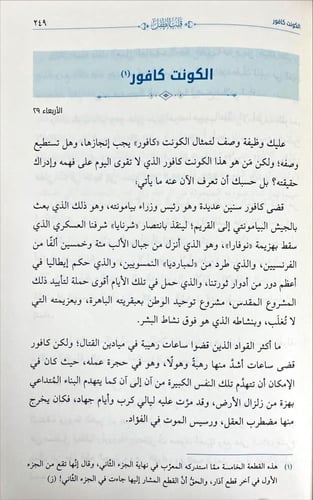 الكونت كافور
قلب الطفل
٢٤٩
الكونت كافور(١)
الأربعاء ٢٩
عليك وظيفة وصف لتمثال الكونت «كافور» يجب إنجازها، وهل تستطيع
وصفه؛ ولكن مَن هو هذا الكونت كافور الذي لا تقوى اليوم على فهمه وإدراك
حقيقته؟ بل حسبك أن تعرف الآن عنه ما يأتي:
قضى كافور سنين عديدة وهو رئيس وزراء بيامونته، وهو ذلك الذي بعث
بالجيش البيامونتي إلى القريم؛ لينقذ بانتصار «شرنايا» شرفنا العسكري الذي
سقط بهزيمة «نوفارا»، وهو الذي أنزل من جبال الألب مئة وخمسين ألفًا من
الفرنسيين، والذي طرد من «لمبارديا» النمسويين، والذي حكم إيطاليا في
أعظم دور من أدوار ثورتنا، والذي حمل في تلك الأيام أقوى حملة لتأييد ذلك
المشروع المقدس، مشروع توحيد الوطن بعبقريته الباهرة، وبعزيمته التي
لا تُغلَب، وبنشاطه الذي هو فوق نشاط البشر.
ما أكثر القواد الذين قضوا ساعات رهيبة في ميادين القتال؛ ولكن كافور
قضى ساعات أشدَّ منها رهبةً وهولًا، وهو في حجرة عمله، حيث كان في
الإمكان أن تتهدَّم تلك النفس الكبيرة من آن إلى آن كما يتهدم البناء المُتداعي
بهزة من زلزال الأرض، وقد مرَّت عليه ليالي كرب وأيام جهاد، فكان يخرج
منها مضطرب العقل، ورسيس الموت في الفؤاد.
(١) هذه القطعة الخامسة ممَّا استدركه المعرِّب في نهاية الجزء الثاني، وقال إنَّها تقع من الجزء
الأول في آخر قطع آذار، والحقُّ أنَّ القطع المشار إليها جاءت في الجزء الثاني! (ز)